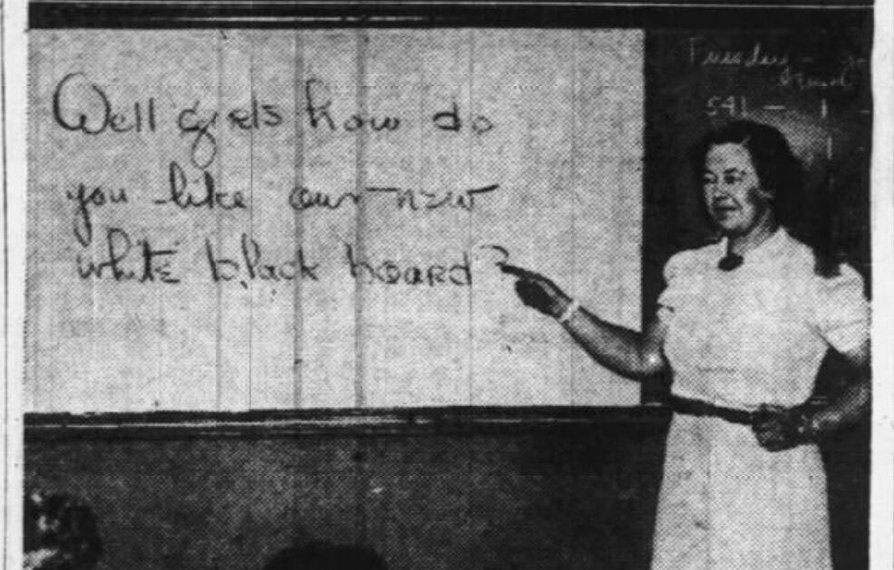 Well girls how do
you like our new
white black board?
Tuesday -
541 -